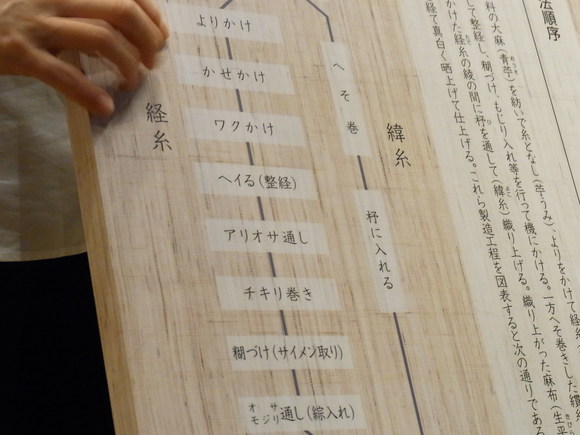 法順序
料の大麻(青苧)を紡いで糸となし(苧うみ)、よりをかけて経糸
して整経し、糊づけ、もじり入れ等を行って機にかける。一方へそ巻きした
かけた経糸の綾の間に杼を通して(緯糸)織り上げる。織り上がった麻布(生平
経て真白く晒上げて仕上げる。これら製造工程を図表すると次の通りである
緯糸
へそ巻
杼に入れる
経糸
よりかけ
かせかけ
ワクかけ
ヘイる(整経)
アリオサ通し
チキリ巻き
糊づけ(サイメン取り)
オサモジリ通し(綜入れ)